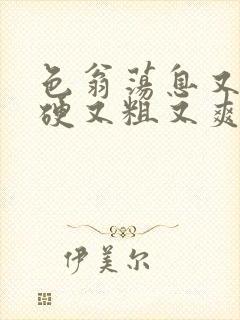 色翁荡息又
硬又粗又爽
伊美尔